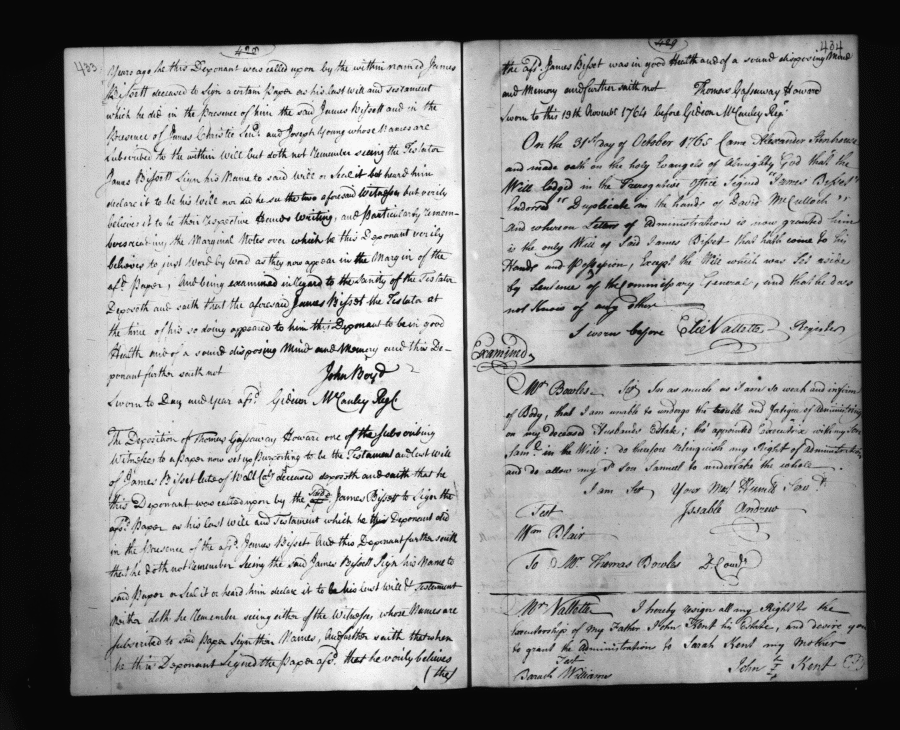 433
Years ago he this Deponant was called upon by the within named James
Bissett deceased to Sign a certain Paper as his last will and testament
which he did in the Presence of him the said James Bissett and in the
Presence of James Christie Junr. and Joseph Young whose Names are
subscribed to the within Will but doth not Remember seeing the Testator
James Bissett Sign his Name to said Will or Seal it or heard him
declare it to be his Will nor did he see the two aforesaid Witnesses but verily
believes it to be their respective Hands Writing, and Particularly remem-
bers the Marginal Notes over which he this Deponant verily
believes to just Word by Word as they now appear in the Margin of the
afsd. Paper, And being examined in regard to the Sanity of the Testator
Deposeth and saith that the aforesaid James Bissett the Testator at
the time of his so doing appeared to him this Deponant to be in good
Health and of a sound disposing Mind and Memory and this De-
ponant further saith not
John Boyd
Sworn to Day and Year afsd. Gideon McCauley Regr.
The Deposition of Thomas Gassaway Howard one of the subscribing
Witnesses to a Paper now set up Purporting to be the Testament and Last Will
of James Bisset late of Balt. Coty. deceased deposeth and saith that he
this Deponant was called upon by the said James Bisset to Sign the
afsd. Paper as his last Will and Testament which he this Deponant did
in the Presence of the afsd. James Bisset And this Deponant further saith
that he doth not remember seeing the said James Bissett Sign his Name to
said Paper or Seal it or heard him declare it to be his last Will & Testament
Neither doth he Remember seeing either of the Witnesses, whose Names are
subscribed to said Paper Sign their Names, And further saith that when
he this Deponant Signed the Paper afsd. that he verily believes
(the)
434
the afsd. James Bisset was in good Health and of a sound disposing Mind
and Memory and further saith not Thomas Gassaway Howard
Sworn to this 19th Novembr. 1764 before Gideon McCauley Regr.
On the 31st day of October 1765 Came Alexander
and made oath on the holy Evangels of Almighty God that the
Will lodged in the Perogative Office Signed "James Bisset"
Endorsed "Duplicate in the hands of David McCulloch"
And whereon Letters of Administrations is now granted him
is the only Will of Said James Bisset that hath come to his
Hands and Possession, Except the Will which was Set aside
by Sentence of the Commissary General, and that he does
not Know of any other
Sworn before Elie Vallette Register
Examined
Mr. Bowles Sir In as much as I am so weak and infirm
of Body, that I am unable to undergo the trouble and fatigue of Administring
on my deceased Husbands Estate; tho' appointed Executrix with my Son
Saml. in the Will: do therefore relinquish my Right of Administration,
and do allow my sd. Son Samuel to undertake the whole
I am Sir Your Most Humble Servt.
Test Issable Andrew
Wm. Blair
To Mr. Thomas Bowles
Mr. Vallette I hereby resign all my Right to the
Executorship of my Father John Kent his Estate, and desire you
to grant the Administration to Sarah Kent my Mother
Test
Baruch Williams John Kent